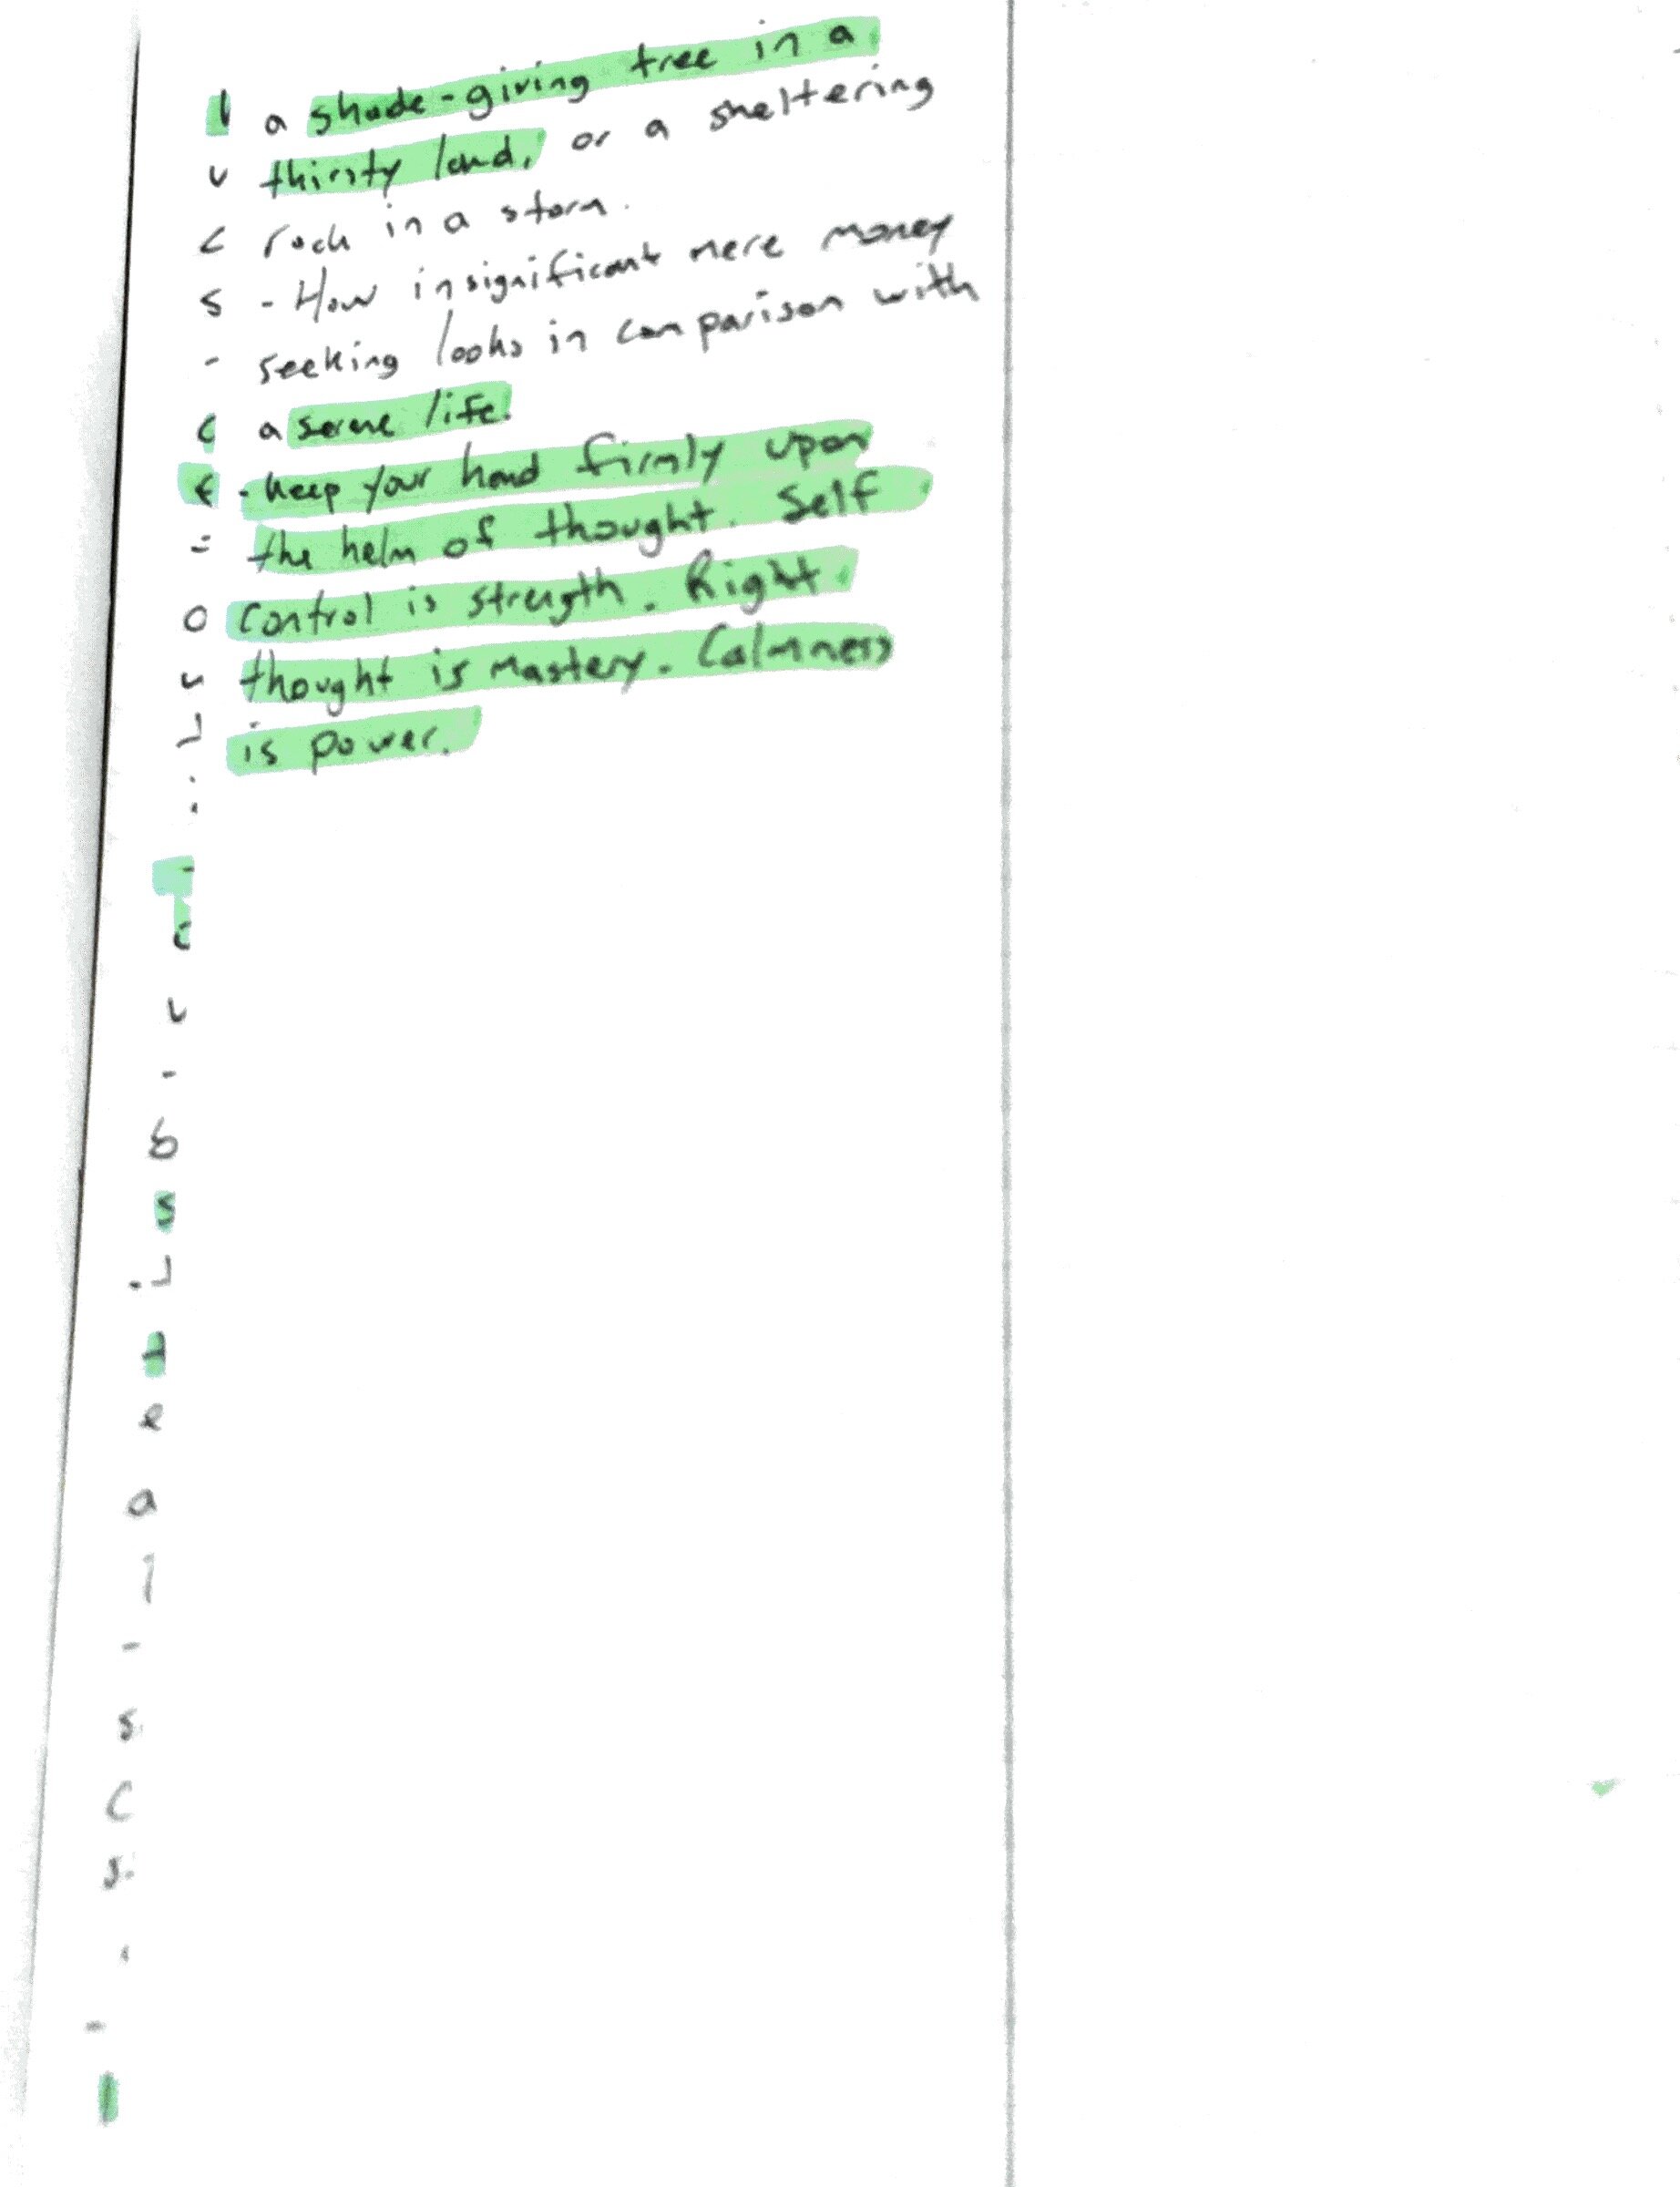 a shade-giving tree in a
thirsty land, or a sheltering
rock in a storm.
- How insignificant mere money
seeking looks in comparison with
a serene life!
- Keep your hand firmly upon
the helm of thought. Self
control is strength. Right
thought is mastery. Calmness
is power.